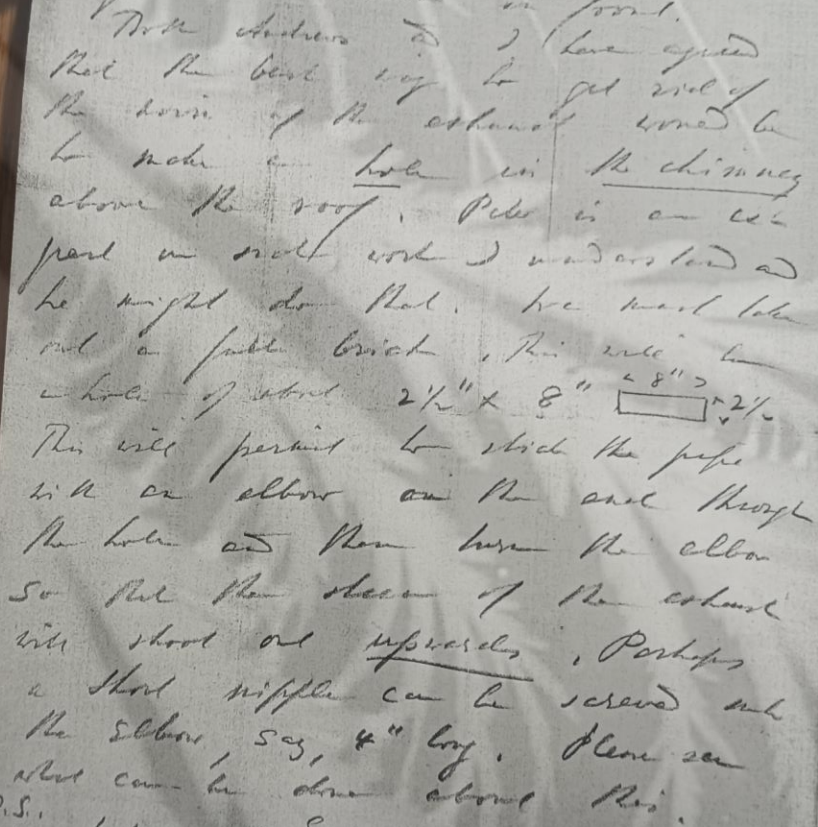 in front.
Both Andrews and I have agreed
that the best way to get rid of
the noise of the exhaust would be
to make a hole in the chimney
above the roof. Peter is an ex-
pert in such work I understand and
he might do that. We must take
out a full brick. This will be
a hole of about 2½" x 8" 8" 2½
This will permit to stick the pipe
with an elbow on the end through
the hole and then turn the elbow
so that the steam of the exhaust
will shoot out upwards. Perhaps
a short nipple can be screwed into
the elbow, say, 4" long. Please see
what can be done about this.
P.S.